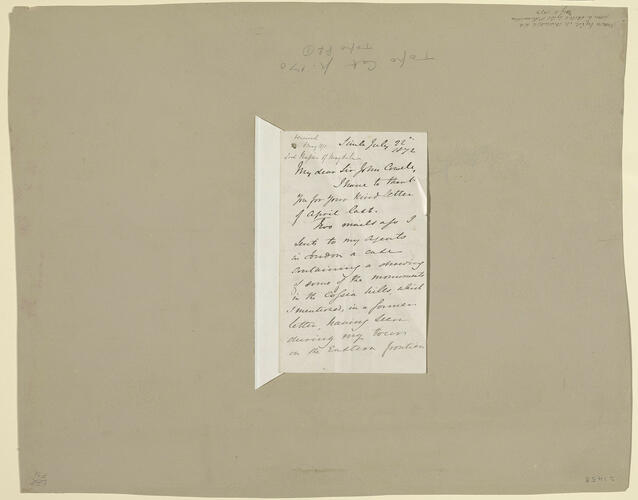 Simla July 22nd
1872
Lord Napier of Magdala
My dear Sir John Cowell,
I have to thank
you for your kind letter
of April last.
Two mails ago I
sent to my agents
in London a case
containing a drawing
of some of the monuments
in the Cossia hills, which
I mentioned, in a former
letter, having seen
during my tour
on the Eastern frontier
21458